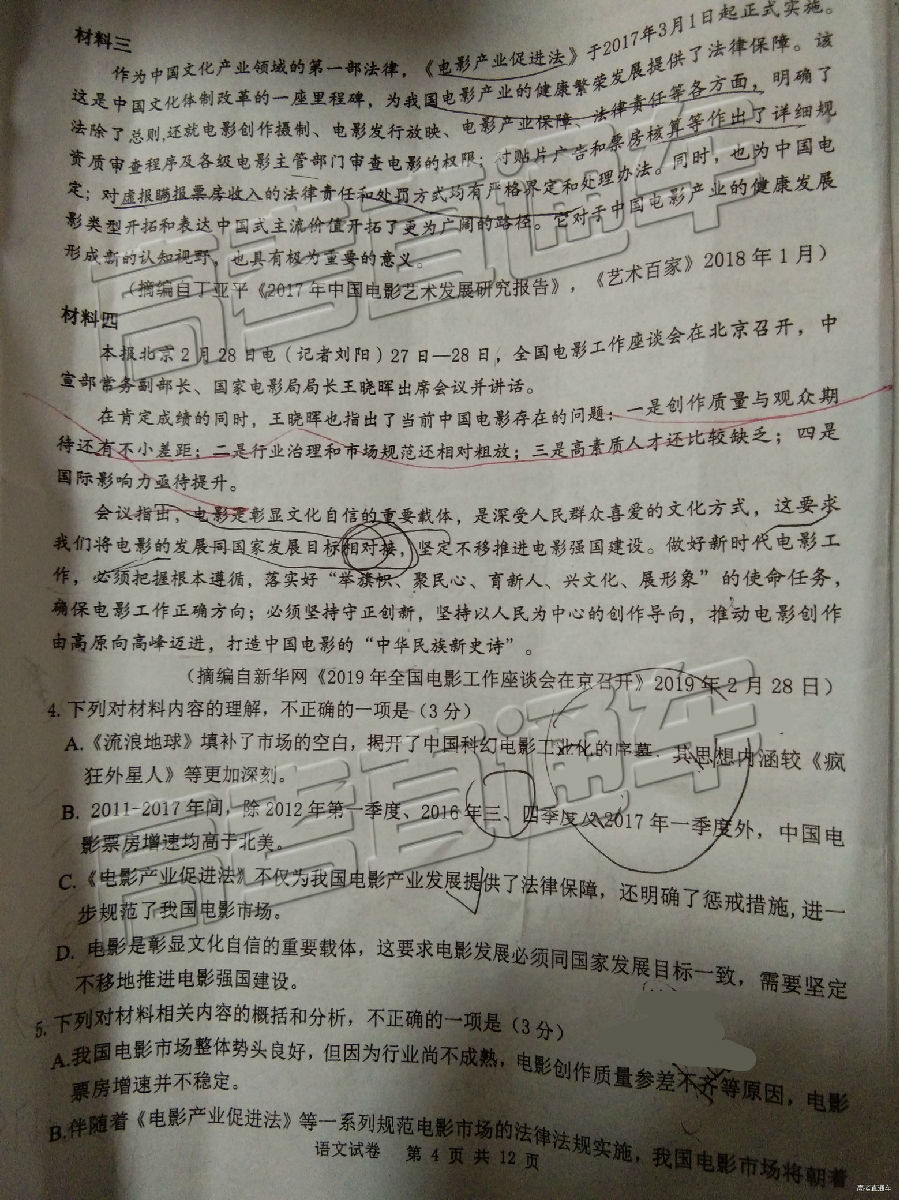 材料三
作为中国文化产业领域的第一部法律，《电影产业促进法》于2017年3月1日起正式实施。
这是中国文化体制改革的一座里程碑，为我国电影产业的健康繁荣发展提供了法律保障。该
法除了总则,还就电影创作摄制、电影发行放映、电影产业保障、法律责任等各方面，明确了
资质审查程序及各级电影主管部门审查电影的权限；对贴片广告和票房核算等作出了详细规
定；对虚报瞒报票房收入的法律责任和处罚方式均有严格界定和处理办法。同时，也为中国电
影类型开拓和表达中国式主流价值开拓了更为广阔的路径。它对于中国电影产业的健康发展
形成新的认知视野，也具有极为重要的意义。
（摘编自丁亚平《2017年中国电影艺术发展研究报告》，《艺术百家》2018年1月）
材料四
本报北京2月28日电（记者刘阳）27日—28日，全国电影工作座谈会在北京召开，中
宣部常务副部长、国家电影局局长王晓晖出席会议并讲话。
在肯定成绩的同时，王晓晖也指出了当前中国电影存在的问题：一是创作质量与观众期
待还有不小差距；二是行业治理和市场规范还相对粗放；三是高素质人才还比较缺乏；四是
国际影响力亟待提升。
会议指出，电影是彰显文化自信的重要载体，是深受人民群众喜爱的文化方式，这要求
我们将电影的发展同国家发展目标相对接，坚定不移推进电影强国建设。做好新时代电影工
作，必须把握根本遵循，落实好“举旗帜、聚民心、育新人、兴文化、展形象”的使命任务，
确保电影工作正确方向；必须坚持守正创新，坚持以人民为中心的创作导向，推动电影创作
由高原向高峰迈进，打造中国电影的“中华民族新史诗”。
（摘编自新华网《2019年全国电影工作座谈会在京召开》2019年2月28日）
4. 下列对材料内容的理解，不正确的一项是（3分）
A.《流浪地球》填补了市场的空白，揭开了中国科幻电影工业化的序幕，其思想内涵较《疯
狂外星人》等更加深刻。
B. 2011-2017年间，除2012年第一季度、2016年三、四季度及2017年一季度外，中国电
影票房增速均高于北美。
C.《电影产业促进法》不仅为我国电影产业发展提供了法律保障，还明确了惩戒措施,进一
步规范了我国电影市场。
D. 电影是彰显文化自信的重要载体，这要求电影发展必须同国家发展目标一致，需要坚定
不移地推进电影强国建设。
5. 下列对材料相关内容的概括和分析，不正确的一项是（3分）
A.我国电影市场整体势头良好，但因为行业尚不成熟，电影创作质量参差不齐等原因，电影
票房增速并不稳定。
B.伴随着《电影产业促进法》等一系列规范电影市场的法律法规实施，我国电影市场将朝着
语文试卷 第 4 页 共 12 页
高考直通车
高考直通车
高考直通车